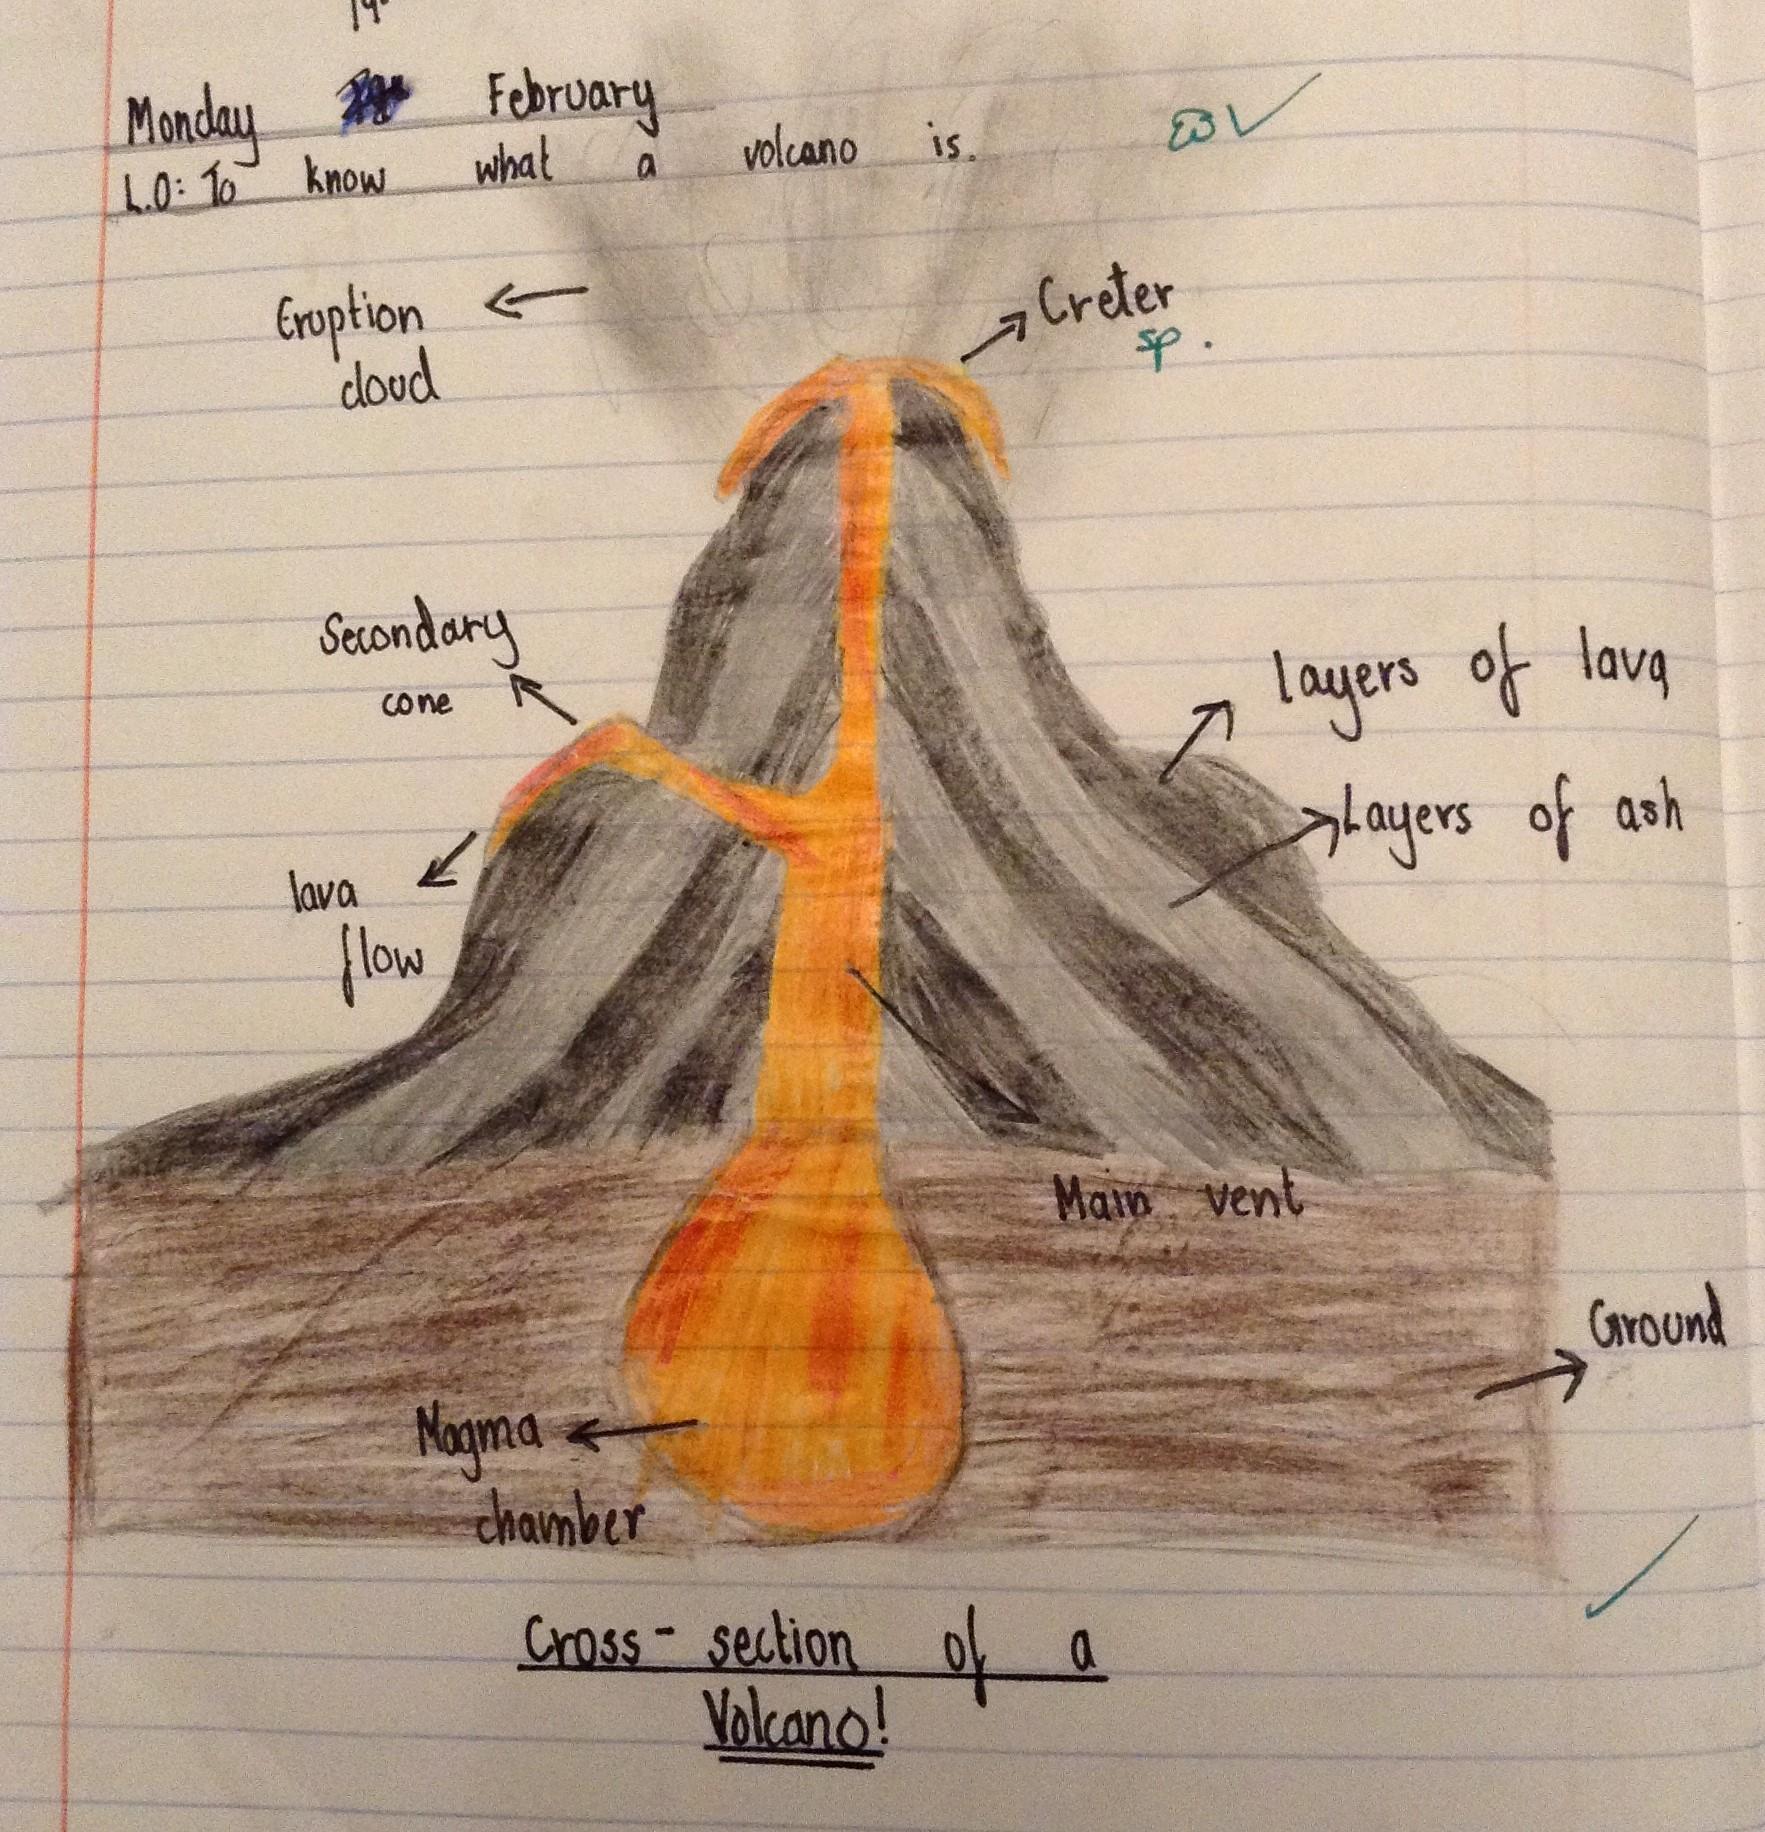 Monday February
L.O: To know what a volcano is.
Eruption
cloud
Creter
sp.
Secondary
cone
Layers of lava
Layers of ash
lava
flow
Main vent
Ground
Magma
chamber
Cross-section of a
Volcano!